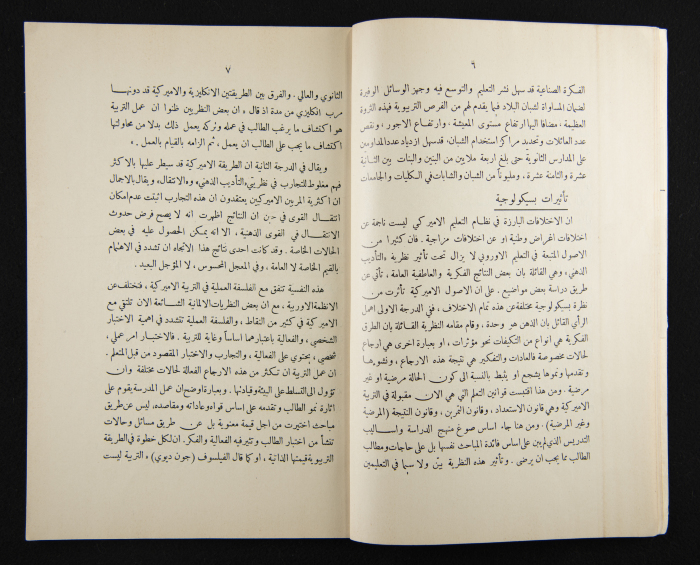 ٦
الفكرة الصناعية قد سهل نشر التعليم والتوسع فيه وجهز الوسائل الوفيرة
لضمان المساواة لشبان البلاد فيما يقدم لهم من الفرص التربيوية فهذه الثروة
العظيمة ، مضافا اليها ارتفاع مستوى المعيشة ، وارتفاع الاجور ، ونقص
عدد العائلات وتحديد مراكز استخدام الشبان، قد سهل ازدياد عدد المداومين
على المدارس الثانوية حتى بلغ اربعة ملايين من البنين والبنات بين الثانية
عشرة والثامنة عشرة ، ومليوناً من الشبان والشابات في الكليات والجامعات
تأثيرات بسيكولوجية
ان الاختلافات البارزة في نظام التعليم الاميركي ليست ناتجة عن
اختلافات اغراض وطنية او عن اختلافات مزاجية . فان كثيرا من
الاصول المتبعة في التعليم الاوروبي لا يزال تحت تأثير نظرية «التأديب
الذهني» وهي القائلة بان بعض النتائج الفكرية والعاطفية العامة ، تأتي عن
طريق دراسة بعض مواضيع . على ان الاصول الاميركية تأثرت من
نظرة بسيكولوجية مختلفة عن هذه تمام الاختلاف ، ففي الدرجة الاولى اهمل
الرأي القائل بان الذهن هو وحدة ، وقام مقامه النظرية القائلة بان الطرق
الفكرية هي انواع من التكيفات نحو مؤثرات ، او بعبارة اخرى هي ارجاع
لحالات مخصوصة فالعادات والتفكير هي نتيجة هذه الارجاع ، ونشوءها
وتقدمها ونموها يشجع او يثبط بالنسبة الى كون الحالة مرضية او غير
مرضية . ومن هذا اقتبست قوانين التعلم التي هي الان مقبولة في التربية
الاميركية وهي قانون الاستعداد ، وقانون التمرين ، وقانون النتيجة ( المرضية
وغير المرضية ) . ومن هنا جاء اساس صوغ منهج الدراسة واساليب
التدريس الذي لم يبن على اساس فائدة المباحث نفسها بل على حاجات ومطالب
الطالب مما يجب ان يرضى . وتأثير هذه النظرية بين ولا سيما في التعليمين
٧
الثانوي والعالي . والفرق بين الطريقتين الانكليزية والاميركية قد دونها
مرب انكليزي من مدة اذ قال « ان بعض النظريين ظنوا ان عمل التربية
هو اكتشاف ما يرغب الطالب في عمله وتركه يعمل ذلك بدلا من محاولتها
اكتشاف ما يجب على الطالب ان يعمل ، ثم الزامه بالقيام بالعمل » .
ويقال في الدرجة الثانية ان الطريقة الاميركية قد سيطر عليها بالاكثر
فهم مغلوط للتجارب في نظريتي «التأديب الذهني» و«الانتقال» ويقال بالاجمال
ان اكثرية المربين الاميركيين يعتقدون ان هذه التجارب اثبتت عدم امكان
انتقال القوى في حين ان النتائج اظهرت انه لا يصح فرض حدوث
الانتقال في القوى الذهنية ، الا انه يمكن الحصول عليه في بعض
الحالات الخاصة . وقد كانت احدى نتائج هذا الاتجاه ان تشدد في الاهتمام
بالقيم الخاصة لا العامة ، وفي المعجل المحسوس ، لا المؤجل البعيد .
هذه النفسية تتفق مع الفلسفة العملية في التربية الاميركية ، فتختلف عن
الانظمة الاوربية ، مع ان بعض النظريات الالمانية الشائعة الان تلتقي مع
الاميركية في كثير من النقاط ، والفلسفة العملية تتشدد في اهمية الاختبار
الشخصي ، والفعالية باعتبارهما اساساً وغاية للتربية . فالاختبار امر عملي ،
شخصي ، يحتوي على الفعالية ، والتجارب والاختبار المقصود من قبل المتعلم .
ان عمل التربية ان تكثر من هذه الارجاع الفعالة لحالات مختلفة وان
تؤول الى التسلط على البيئة وقيادتها . وبعبارة اوضح ان عمل المدرسة يقوم على
اثارة نمو الطالب وتقدمه على اساس قواه وعاداته ومقاصده، ليس عن طريق
مباحث اختيرت من اجل قيمة معنوية بل عن طريق مسائل وحالات
تنشأ من اختبار الطالب وتثير فيه الفعالية والفكر . ان لكل خطوة في الطريقة
التربيوية قيمتها الذاتية ، او كما قال الفيلسوف (جون ديوي) « التربية ليست